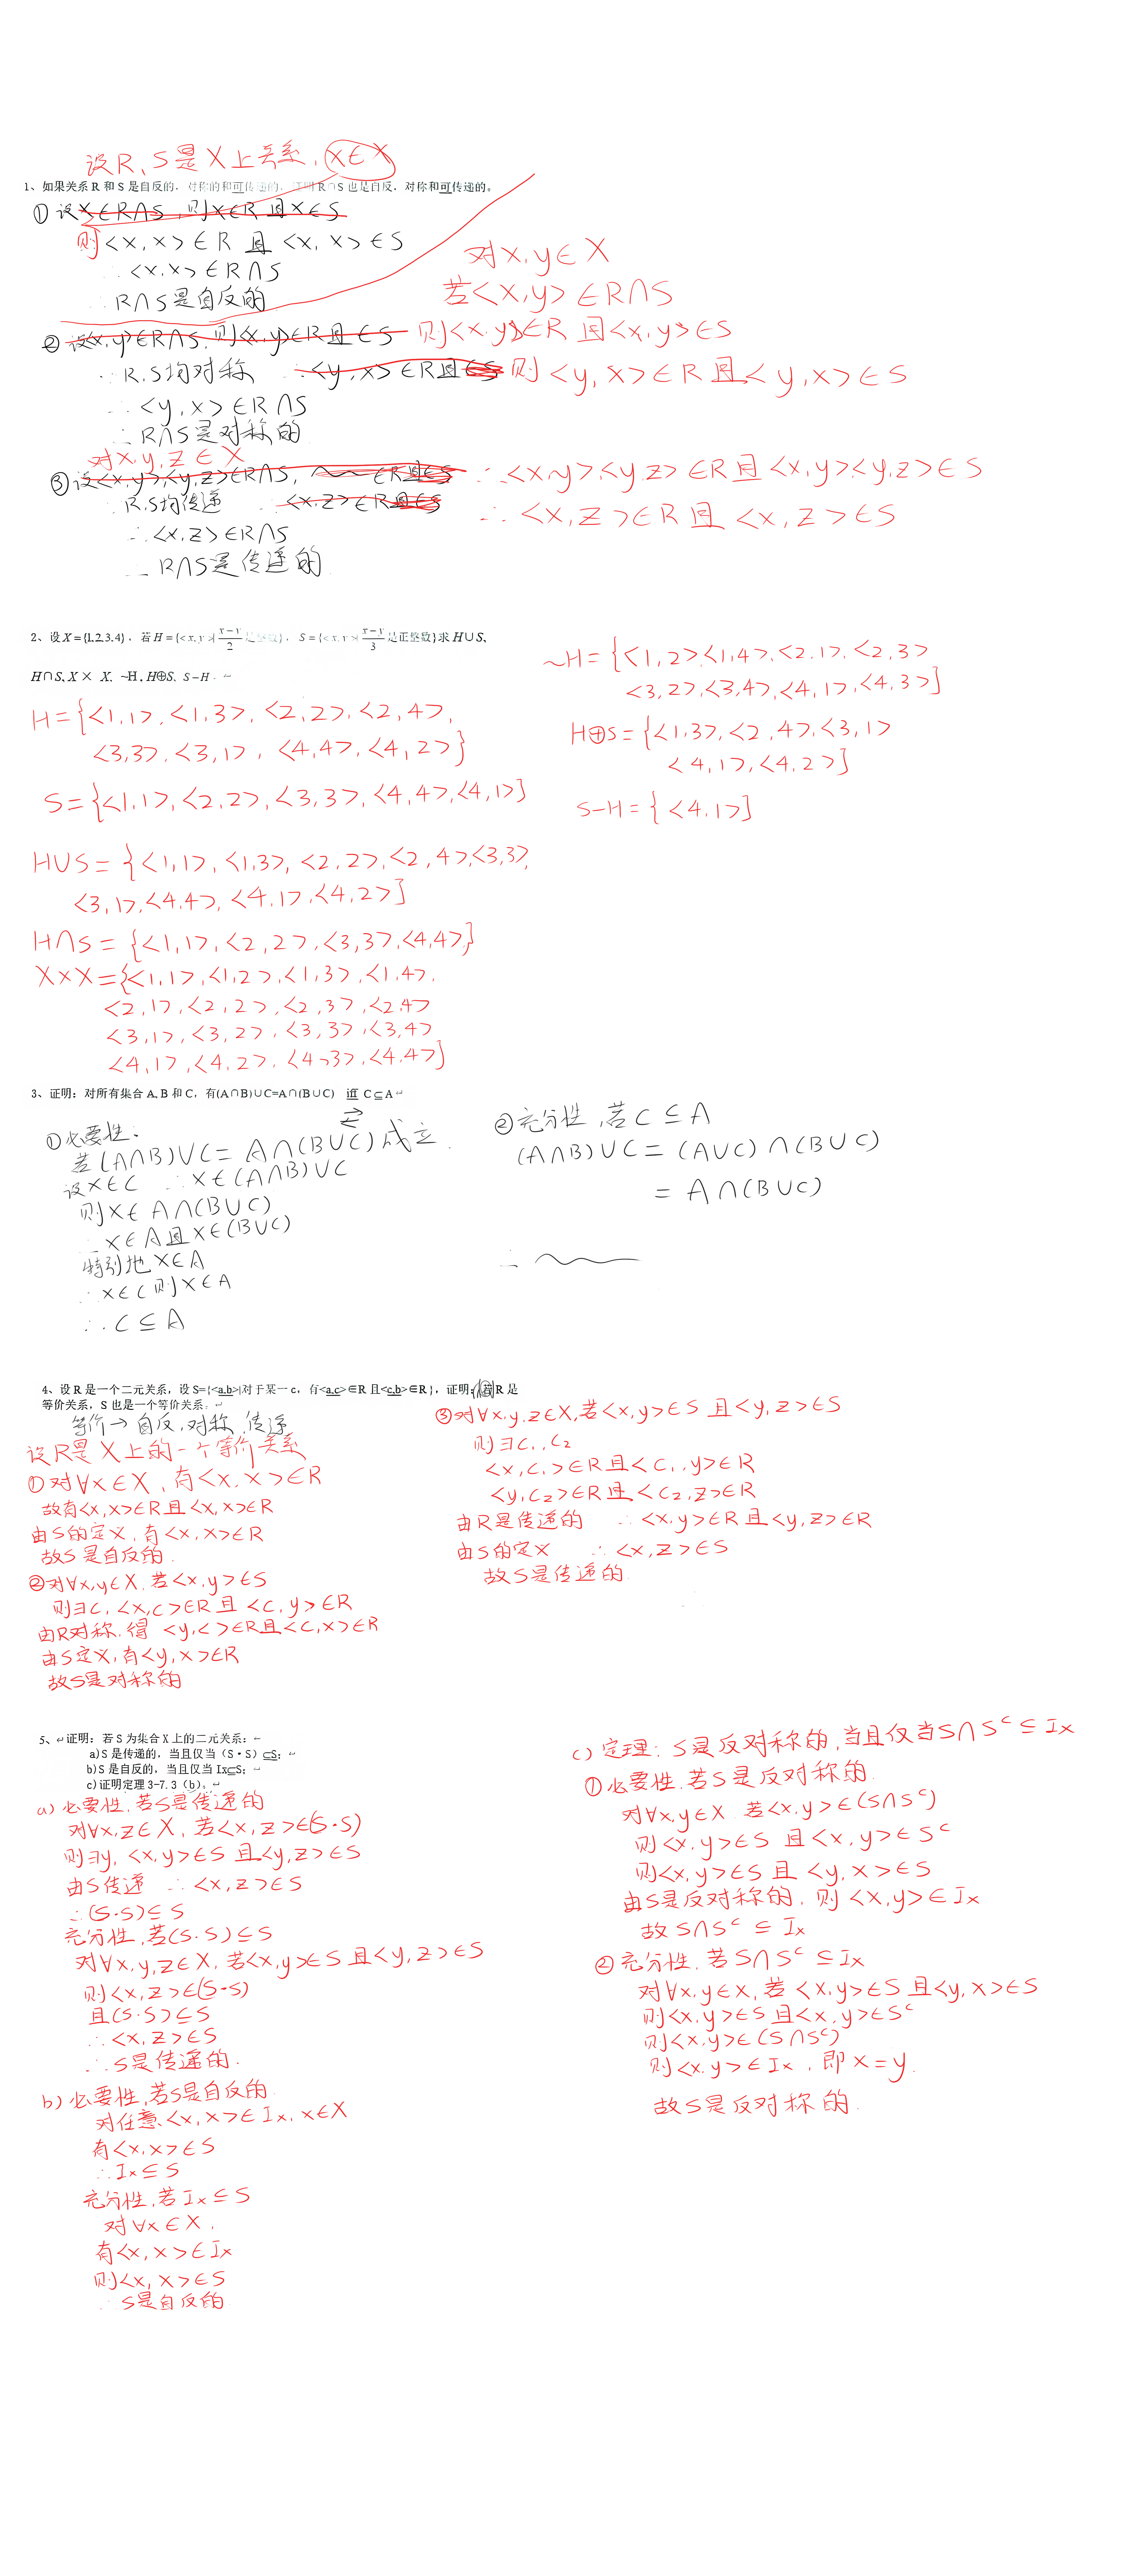 设R、S是X上关系，x∈X
1、如果关系 R 和 S 是自反的，对称的和可传递的，证明 R∩S 也是自反，对称和可传递的。
① 设x∈R∩S，则x∈R且x∈S
则<x,x>∈R 且 <x,x>∈S
∴<x,x>∈R∩S
∴R∩S是自反的
对x,y∈X
若<x,y>∈R∩S
② 设<x,y>∈R∩S，则<x,y>∈R且∈S 则<x,y>∈R 且<x,y>∈S
∵R,S均对称 ∴<y,x>∈R且∈S 则<y,x>∈R且<y,x>∈S
∴<y,x>∈R∩S
∴R∩S是对称的
对x,y,z∈X
③ 设<x,y>,<y,z>∈R∩S, ∈R且∈S ∴<x,y>,<y,z>∈R且<x,y><y,z>∈S
R,S均传递 ∴<x,z>∈R且∈S ∴<x,z>∈R且<x,z>∈S
∴<x,z>∈R∩S
∴R∩S是传递的
2、设 X={1,2,3,4}，若 H={<x,y>| x−y/2 是整数}，S={<x,y>| x−y/3 是正整数}求 H∪S,
H∩S, X× X, ~H, H⊕S, S−H。
H={<1,1>,<1,3>,<2,2>,<2,4>,
<3,3>,<3,1>,<4,4>,<4,2>}
S={<1,1>,<2,2>,<3,3>,<4,4>,<4,1>}
H∪S={<1,1>,<1,3>,<2,2>,<2,4>,<3,3>,
<3,1>,<4,4>,<4,1>,<4,2>}
H∩S={<1,1>,<2,2>,<3,3>,<4,4>,}
X×X={<1,1>,<1,2>,<1,3>,<1,4>,
<2,1>,<2,2>,<2,3>,<2,4>
<3,1>,<3,2>,<3,3>,<3,4>
<4,1>,<4,2>,<4,3>,<4,4>}
~H={<1,2>,<1,4>,<2,1>,<2,3>
<3,2>,<3,4>,<4,1>,<4,3>}
H⊕S={<1,3>,<2,4>,<3,1>
<4,1>,<4,2>}
S−H={<4,1>}
3、证明：对所有集合 A, B 和 C，有(A∩B)∪C=A∩(B∪C) iff C⊆A
① 必要性：
若(A∩B)∪C=A∩(B∪C)成立
设x∈C ∴x∈(A∩B)∪C
则x∈A∩(B∪C)
∴x∈A且x∈(B∪C)
特别地x∈A
∴x∈C则x∈A
∴C⊆A
② 充分性，若C⊆A
(A∩B)∪C=(A∪C)∩(B∪C)
=A∩(B∪C)
∴
4、设 R 是一个二元关系，设 S={<a,b>|对于某一 c，有<a,c>∈R 且<c,b>∈R}，证明：若R 是
等价关系，S 也是一个等价关系。
等价→自反,对称,传递
设R是X上的一个等价关系
① 对∀x∈X，有<x,x>∈R
故有<x,x>∈R且<x,x>∈R
由S的定义,有<x,x>∈R
故S是自反的.
② 对∀x,y∈X,若<x,y>∈S
则∃c,<x,c>∈R且<c,y>∈R
由R对称,得 <y,c>∈R且<c,x>∈R
由S定义,有<y,x>∈R
故S是对称的
③ 对∀x,y,z∈X,若<x,y>∈S 且<y,z>∈S
则∃c₁,c₂
<x,c₁>∈R且<c₁,y>∈R
<y,c₂>∈R且<c₂,z>∈R
由R是传递的 ∴<x,y>∈R且<y,z>∈R
由S的定义 ∴<x,z>∈S
故S是传递的
5、证明：若 S 为集合 X 上的二元关系：
a) S 是传递的，当且仅当（S·S）⊆S；
b) S 是自反的，当且仅当 Ix⊆S；
c) 证明定理 3-7.3（b）。
a) 必要性,若S是传递的
对∀x,z∈X,若<x,z>∈(S·S)
则∃y,<x,y>∈S 且<y,z>∈S
由S传递 ∴<x,z>∈S
∴(S·S)⊆S
充分性,若(S·S)⊆S
对∀x,y,z∈X,若<x,y>∈S 且<y,z>∈S
则<x,z>∈(S·S)
且(S·S)⊆S
∴<x,z>∈S
∴S是传递的.
b) 必要性,若S是自反的.
对任意<x,x>∈Ix, x∈X
有<x,x>∈S
∴Ix⊆S
充分性,若Ix⊆S
对∀x∈X,
有<x,x>∈Ix
则<x,x>∈S
∴S是自反的
c) 定理：S是反对称的,当且仅当S∩Sᶜ⊆Ix
① 必要性,若S是反对称的.
对∀x,y∈X 若<x,y>∈(S∩Sᶜ)
则<x,y>∈S 且<x,y>∈Sᶜ
则<x,y>∈S 且<y,x>∈S
由S是反对称的,则<x,y>∈Ix
故 S∩Sᶜ⊆Ix
② 充分性,若S∩Sᶜ⊆Ix
对∀x,y∈X,若<x,y>∈S 且<y,x>∈S
则<x,y>∈S 且<x,y>∈Sᶜ
则<x,y>∈(S∩Sᶜ)
则<x,y>∈Ix,即x=y.
故S是反对称的.